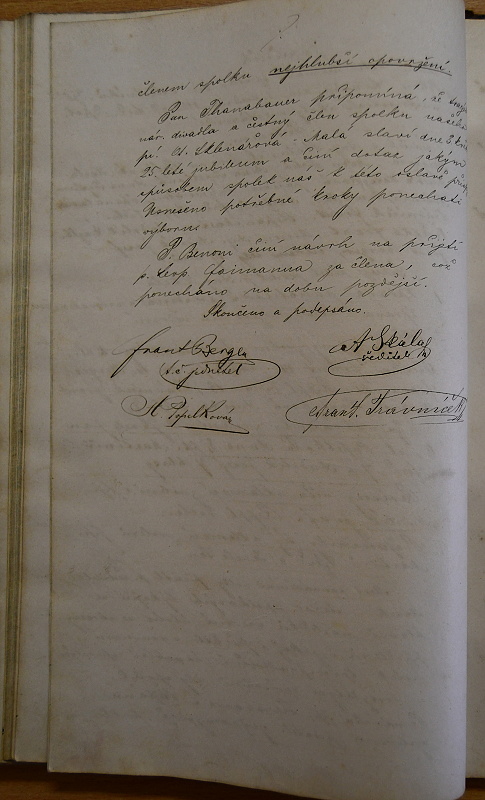 členem spolku nejhlubší opovržení.
Pan Thanabauer připomíná, že
nár. divadla a čestný člen spolku našeho
pí. O. Sklenářová-Malá slaví dne 3.
25. leté jubileum a činí dotaz jakým
způsobem spolek náš k této oslavě
Usnešeno potřebné kroky ponechati
výboru.
P. Benoni činí návrh na přijetí
p. Leop. za člena, což
ponecháno na dobu pozdější.
Skončeno a podepsáno.
Frant Berger
t. č. ředitel
A Skála
ředitel
A Popelková
Frant. Trávníček